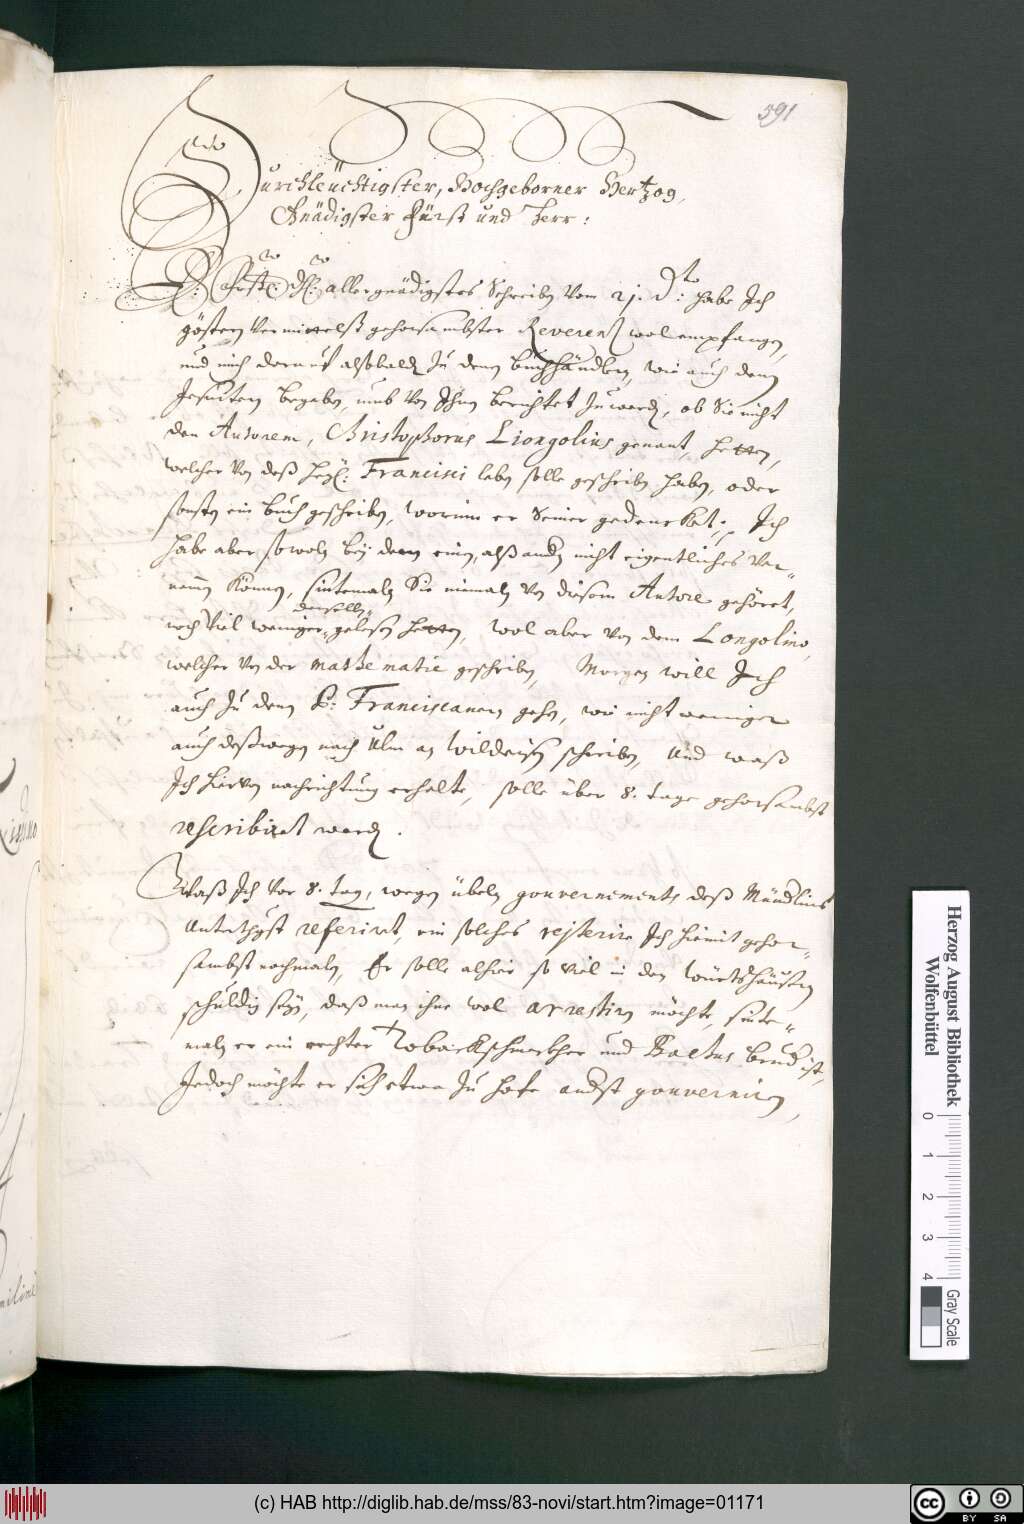 391
Durchleüchtigster, Hochgeborner Hertzog,
Gnädigster Fürst und Herr:
E: Fürstl: Dhl: allergnädigstes Schreiben vom 21. D:to habe Ich
gestern vermittelst gehorsambster Reverenz wol empfangen,
und mich darauf alsobalden Zu denen Buchhändlern, wie auch denen
Jesuitern begeben, umb von Ihnen berichtet Zuwerden, ob Sie nicht
den Autorem, Christophorus Liongolius genant, hetten,
welcher von deß heyl: Francisci leben solle geschriben haben, oder
sonsten ein Buch geschriben, worinn er Seiner gedencket; Ich
habe aber sowoln bey dem einen, alß andern nicht eigentliches ver-
nemmen können, sintemalen Sie niemaln von disem Autore gehöret,
noch viel weniger denselben gelesen hetten, wol aber von dem Longolino,
welcher von der mathematic geschriben, Morgen will Ich
auch Zu denen P: Franciscanern gehen, wie nicht weniger
auch deßwegen nach Ulm an Wilderisen schreiben, Und waß
Ich hiervon nachrichtung erhalte, solle über 8. tage gehorsambst
rescribiret werden.
Waß Ich vor 8. tagen, wegen übeln gouvernements deß Mündlins
Unterthgst referiret, ein solches reiterire Ich hiemit gehor-
sambst nochmaln, Er solle alhier so viel in den Würtshäusern
schuldig seyn, daß man ihne wol arrestiren möchte, sinte-
maln er ein rechter Tobackschmaucher und Bachus bruder ist,
Jedoch möchte er sich etwa Zu hofe anderst gouverniren,
Herzog August Bibliothek
Wolfenbüttel
0 1 2 3 4
Gray Scale
(c) HAB http://diglib.hab.de/mss/83-novi/start.htm?image=01171
cc BY SA